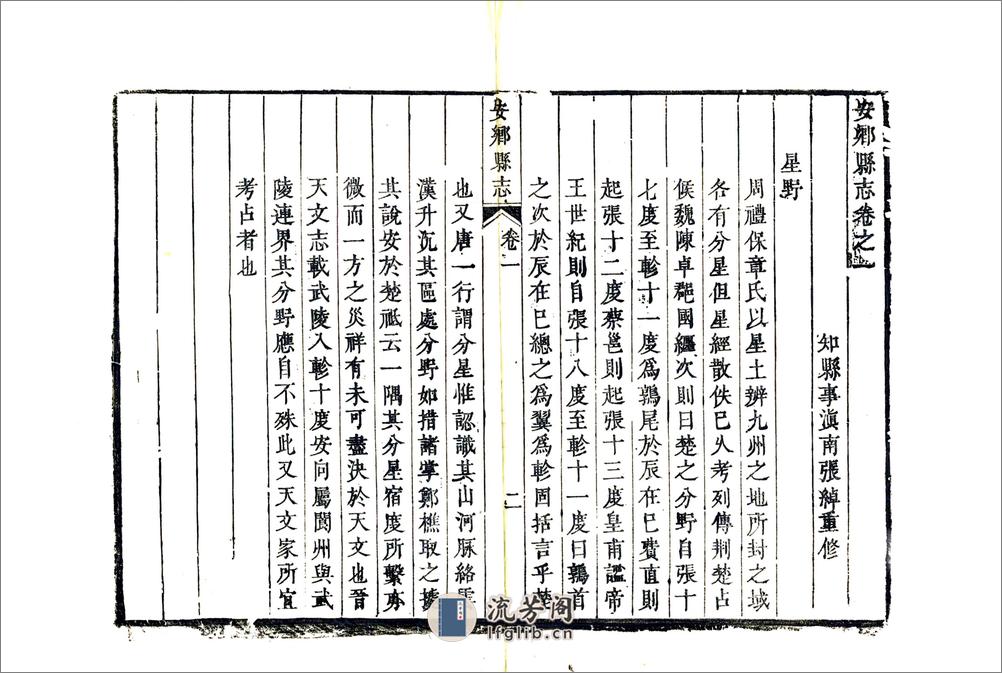 安鄉縣志卷之一
知縣事滇南張綽重修
星野
周禮保章氏以星土辨九州之地所封之域
各有分星但星經散佚已久考列傳荆楚占
候魏陳卓郡國纏次則曰楚之分野自張十
七度至軫十一度爲鶉尾於辰在巳費直則
起張十二度蔡邕則起張十三度皇甫謐帝
王世紀則自張十八度至軫十一度曰鶉首
之次於辰在巳總之爲翼爲軫固括言乎楚
安鄉縣志 卷一 二
也又唐一行謂分星惟認識其山河脉絡雲
漢升沉其區處分野如指諸掌鄭樵取之據
其說安於楚祇云一隅其分星宿度所繫亦
微而一方之災祥有未可盡決於天文也晉
天文志載武陵入軫十度安向屬閬州與武
陵連界其分野應自不殊此又天文家所宜
考占者也
流芳阁
lfglib.cn